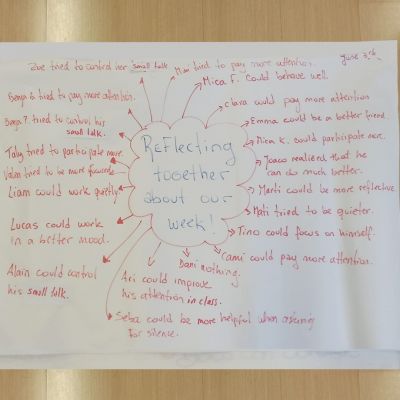 Zoe tried to control her small talk
Mimi tried to pay more attention.
June 3
Mica F. could behave well.
Benja tried to pay more attention.
Clara could pay more attention
Emma could be a better friend.
Benja P. tried to control his
small talk.
Mica K. could participate more.
Toby tried to participate more
Joaco realized that he
can do much better.
tried to be more focused
Liam could work quietly
Marti could be more reflective
Mati tried to be quieter.
Reflecting
together
about our
week!
Lucas could work
in a better mood.
Tino could focus on himself.
Cami could pay more attention.
Dani nothing.
Alain could control
his small talk.
Ari could improve
his attention in class.
Seba could be more helpful when asking
for silence.